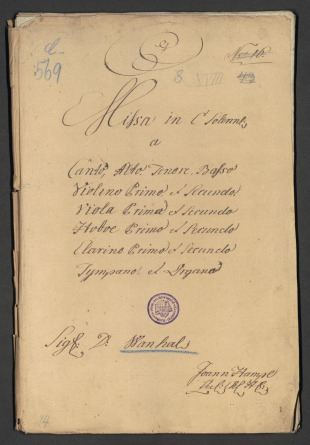 569
No 16.
8 XVIII
Missa in C Solenne
a
Canto, Alto Tenore, Basso
Violino Primo et Secundo
Viola Prima et Secundo
Hoboe Primo et Secundo
Clarino Primo et Secundo
Tympano et Organo
Sigl D: Wanhal
Joann Hampel